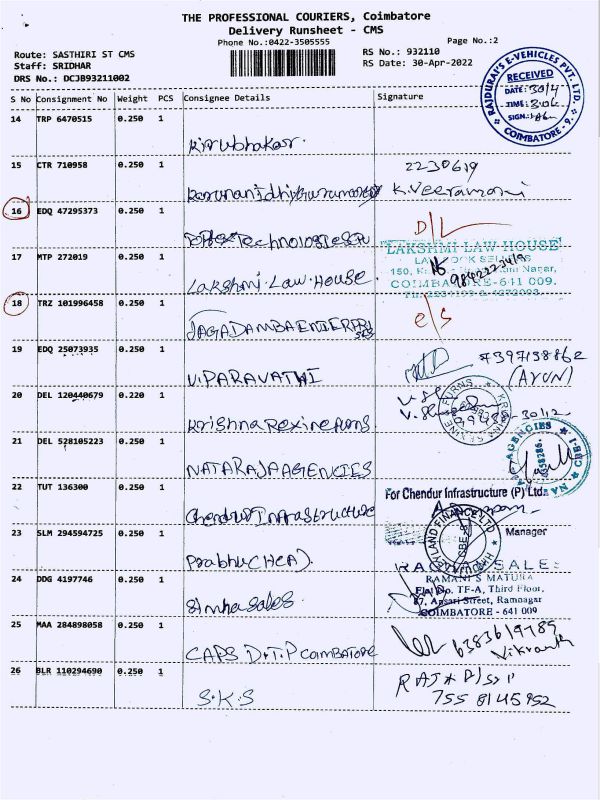 THE PROFESSIONAL COURIERS, Coimbatore
Delivery Runsheet - CMS
Phone No.:0422-3505555
Page No.:2
Route: SASTHIRI ST CMS
Staff: SRIDHAR
DRS No.: DCJB93211002
RS No.: 932110
RS Date: 30-Apr-2022
RAJDURAI'S E-VEHICLES PVT. LTD.
RECEIVED
DATE: 30/4
TIME:
SIGN.:
COIMBATORE - 9.
S No Consignment No Weight PCS Consignee Details Signature
14 TRP 6470515 0.250 1
Kirubhakar.
15 CTR 710958 0.250 1 2230619
K.Veeramani
16 EDQ 47295373 0.250 1 D/L
Technologies
17 MTP 272019 0.250 1 LAKSHMI LAW HOUSE
LAW BOOK SELLERS
Lakshmi Law House. COIMBATORE-641 009.
18 TRZ 101996458 0.250 1 e/s
JAGADAMBA ENTERPRISES
19 EDQ 25073935 0.250 1
V. PARAVATHI (ARUN)
20 DEL 120440679 0.220 1
Krishna Rexine
21 DEL 528105223 0.250 1 AGENCIES
NATARAJA AGENCIES
22 TUT 136300 0.250 1 For Chendur Infrastructure (P) Ltd.
Chendur Infrastructure
23 SLM 294594725 0.250 1 Manager
Prabhu (HCA).
24 DDG 4197746 0.250 1 SALES
RAMANI'S MATURA
Flat No. TF-A, Third Floor,
87, Ansari Street, Ramnagar
Simha Sales. COIMBATORE - 641 009
25 MAA 284898058 0.250 1 6383619789
CAPS D.T.P COIMBATORE Vikranth
26 BLR 110294690 0.250 1
S.K.S 755 8145952